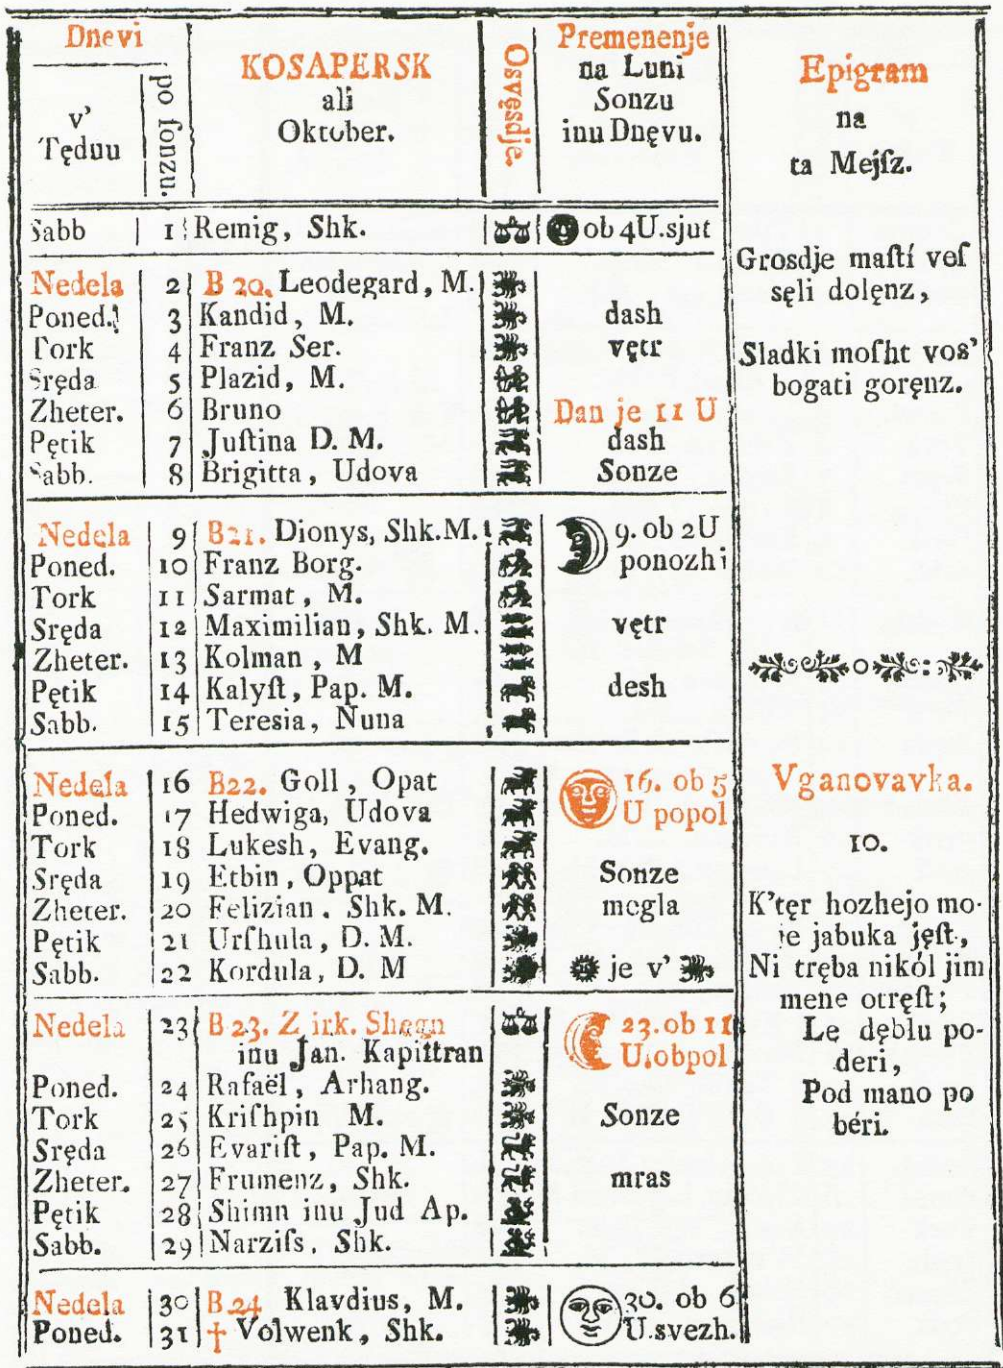 Dnevi
v'
Tędnu
po ſonzu.
KOSAPERSK
ali
Oktober.
Osvęsdje.
Premenenje
na Luni
Sonzu
inu Dnęvu.
Epigram
na
ta Mejſz.
Sabb 1 Remig, Shk. ob 4U.sjut
Nedela 2 B 20. Leodegard, M.
Poned. 3 Kandid, M. dash
Tork 4 Franz Ser. vętr
Sręda 5 Plazid, M.
Zheter. 6 Bruno Dan je 11 U
Pętik 7 Juſtina D. M. dash
Sabb. 8 Brigitta, Udova Sonze
Nedela 9 B21. Dionys, Shk.M. 9. ob 2U
Poned. 10 Franz Borg. ponozhi
Tork 11 Sarmat, M.
Sręda 12 Maximilian, Shk. M. vętr
Zheter. 13 Kolman, M
Pętik 14 Kalyſt, Pap. M. desh
Sabb. 15 Teresia, Nuna
Nedela 16 B22. Goll, Opat 16. ob 5
Poned. 17 Hedwiga, Udova U popol
Tork 18 Lukesh, Evang.
Sręda 19 Etbin, Oppat Sonze
Zheter. 20 Felizian. Shk. M. megla
Pętik 21 Urſhula, D. M.
Sabb. 22 Kordula, D. M je v'
Nedela 23 B 23. Z irk. Shegn 23. ob 11
inu Jan. Kapittran U.obpol
Poned. 24 Rafaël, Arhang.
Tork 25 Kriſhpin M. Sonze
Sręda 26 Evariſt, Pap. M.
Zheter. 27 Frumenz, Shk. mras
Pętik 28 Shimn inu Jud Ap.
Sabb. 29 Narziſs, Shk.
Nedela 30 B 24 Klavdius, M. 30. ob 6
Poned. 31 † Volwenk, Shk. U.svezh.
Grosdje maſtí veſ
sęli dolęnz,
Sladki moſht vos'
bogati goręnz.
Vganovavka.
10.
K'tęr hozhejo mo-
je jabuka jęſt,
Ni tręba nikól jim
mene otręſt;
Le dęblu po-
deri,
Pod mano po
béri.